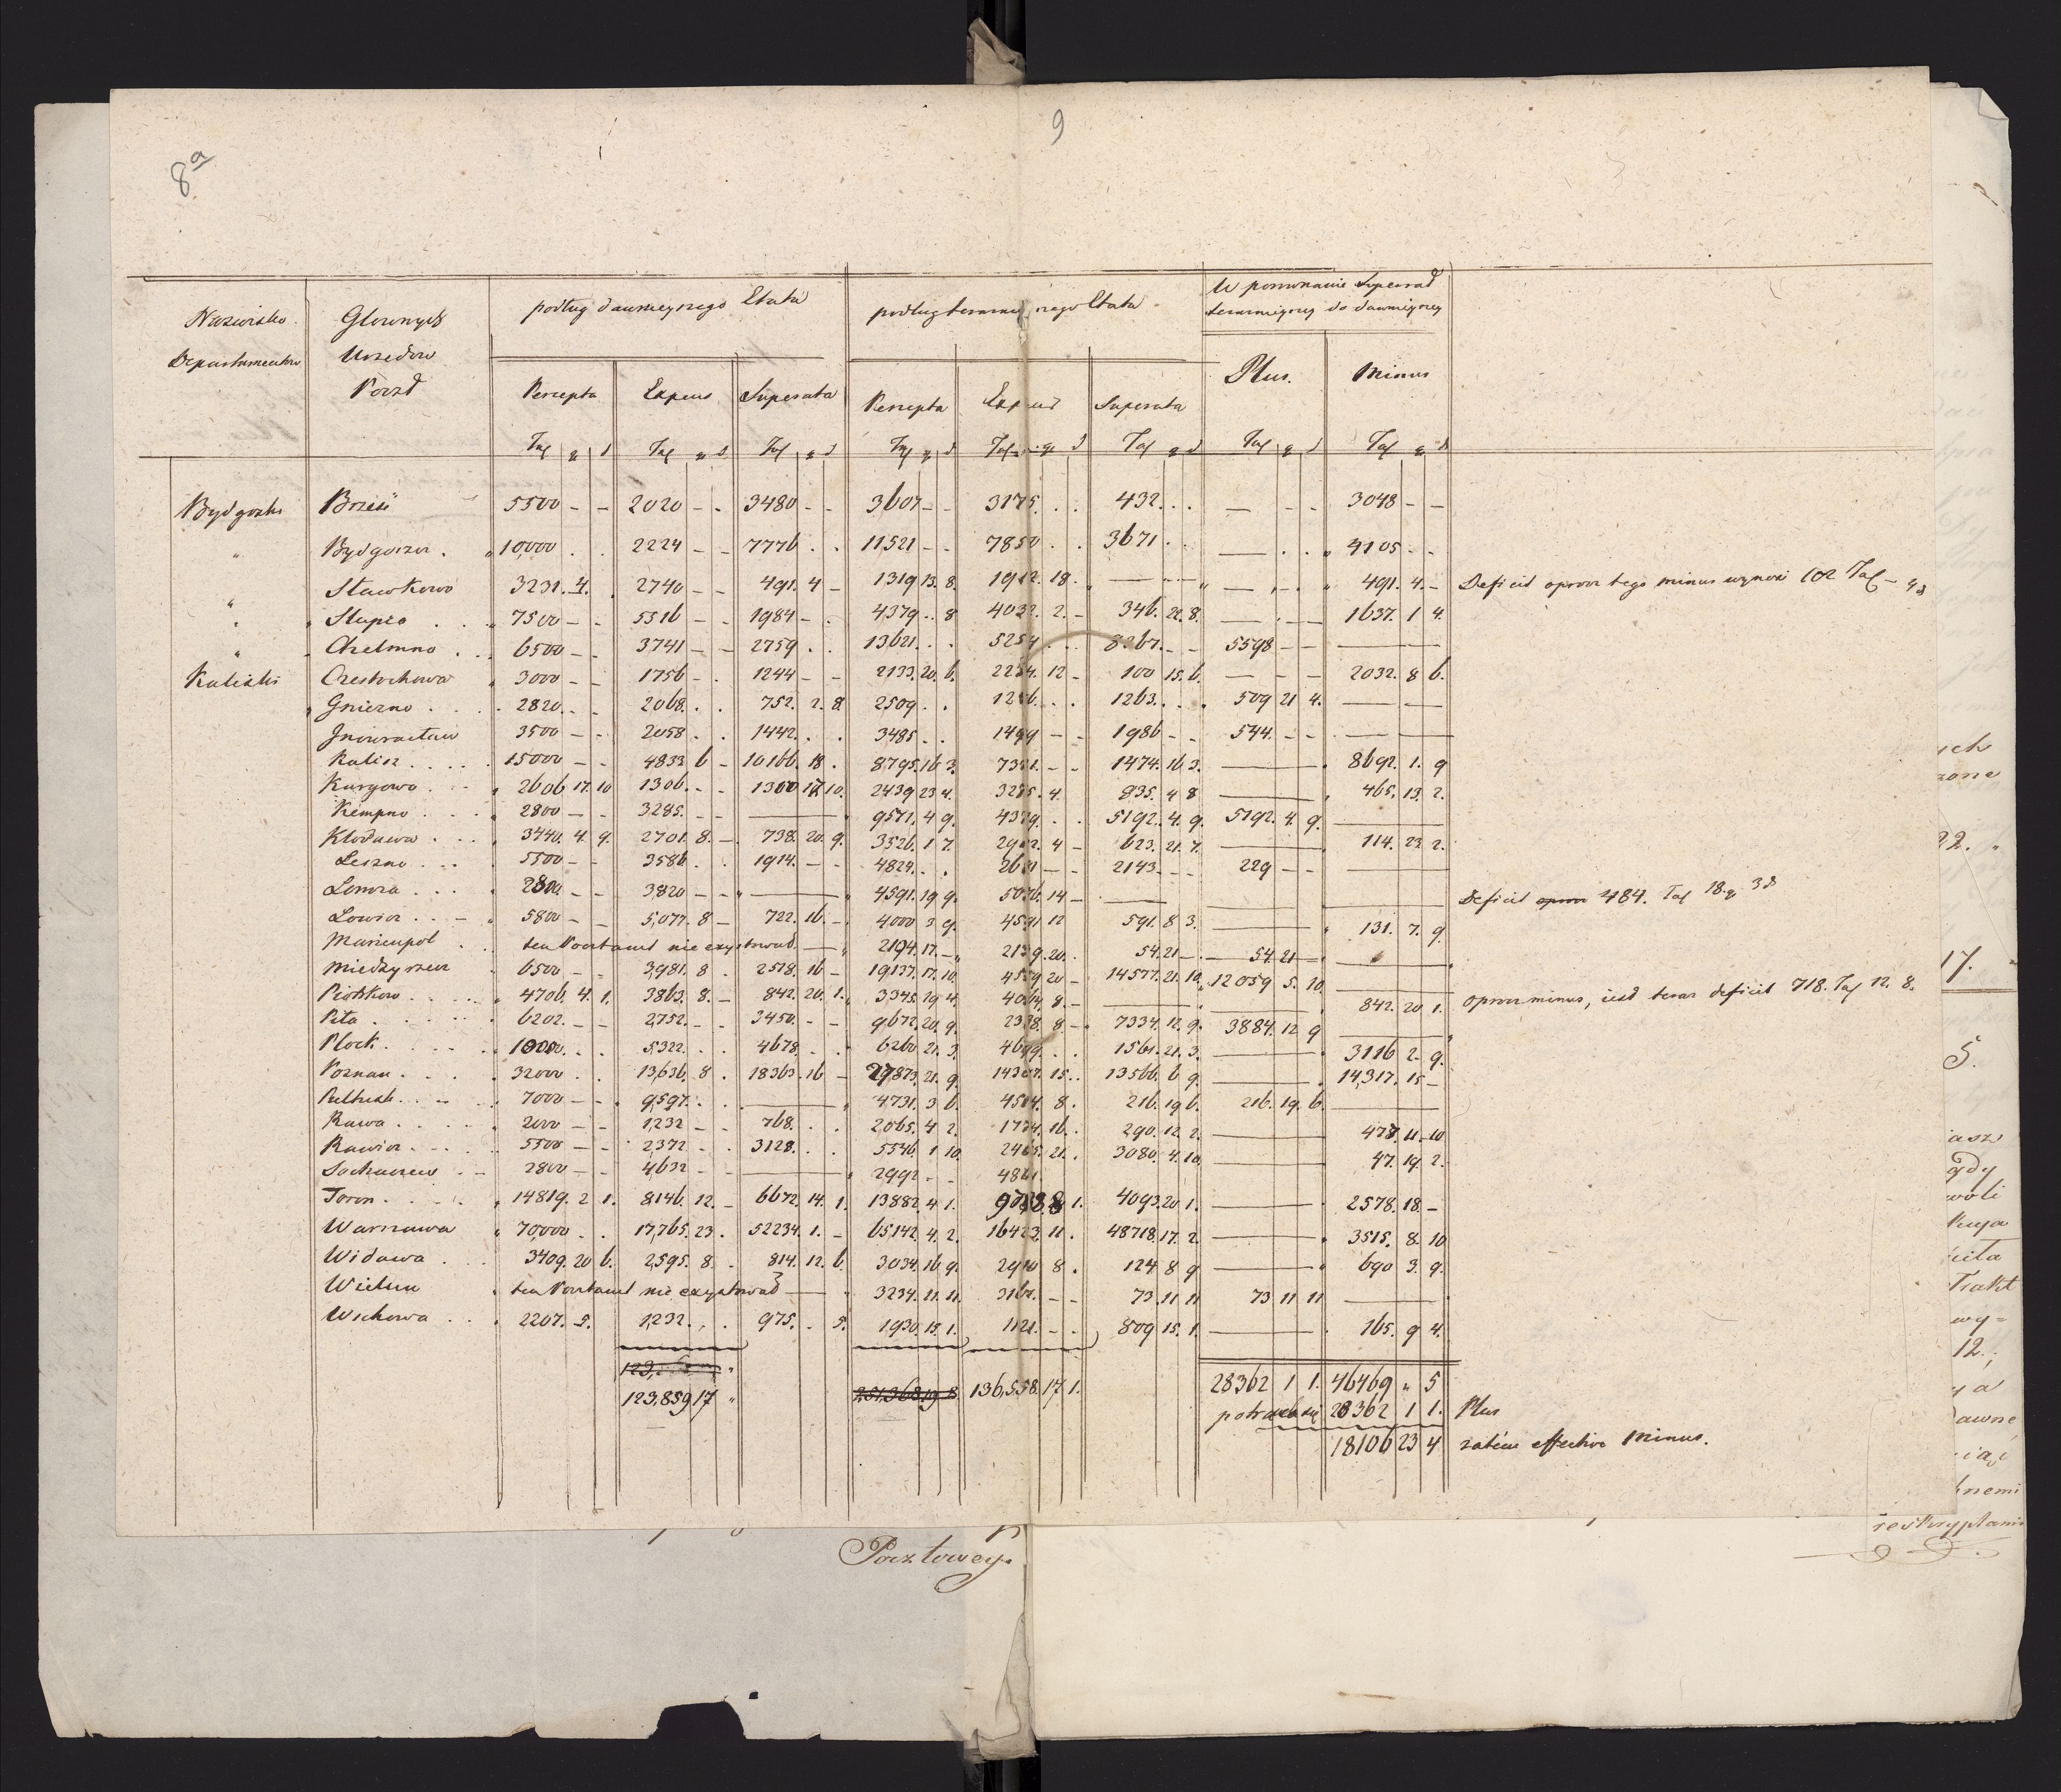 8a
9
Nazwisko Departamentow
Głownych Urzędow Poczt
podług dawnieyszego Etatu
podług teraznieyszego Etatu
W porownanie Superaad
terazniejszej do dawniejszej
Percepta Expens Superata Percepta Expens Superata Plus. Minus
Tal g d Tal g d Tal g d Tal g d Tal g d Tal g d Tal g d Tal g d
Bydgoski Brześć 5500 - - 2020 - - 3480 - - 3607 - - 3175 . . 432 . . — - - 3048 - -
" Bydgoszcz . " 10,000 . . 2224 - - 7776 . . 11,521 - - 7850 . . 3671 . . — . . " 4105 . .
" Sławkowo 3231. 4. 2740 - - 491. 4 - 1319 13. 8. 1912. 18. — — 491. 4. - Deficit oprocz tego minus wynosi 102 Tal - 4 d
" Słupca . . . 7500 - - 5516 - - 1984 - . 4379 . . 8 4032. 2. - 346. 22. 8. — 1637. 1 4.
" Chełmno . . 6500 - - 3741 - - 2759 . . 13621. . . 5254 . . 8367. - - 5598 - - —
Kaliski Czestochowa 3000 - - 1756 - . 1244 - - 2133. 20. 6. 2234. 12 - 100 15. 6. — - - 2032. 8 6.
Gniezno . . . 2820. . . 2068. . . 752. 2. 8 2509 . . 1246. . . 1263. . . 509 21 4. —
Jnowracław 3500 - - 2058 . . 1442. . . 3485 . . 1499 - - 1986 - - 544. - - —
Kalisz . . . . 15000 - - 4833 6 - 10166. 18 . 8795. 16 3. 7321. - - 1474. 16 3. — 8692. 1. 9
Kargowo . . . 2606 17. 10 1306. - - 1300 17 10. 2439 23 4. 3275. 4. 835. 4 8 — 465. 13. 2.
Kempno . . . 2800 - - 3285. - - — 9571. 4 9. 4379. . . 5192. 4. 9. 5192. 4. 9. —
Kłodawa . . . 3440. 4. 9. 2701. 8. - 738. 20. 9. 3526. 1 7. 2902. 4 - 623. 21. 7. — 114. 23. 2.
Leszno . . . 5500 - - 3586. . . 1914. - - 4824. . . 2681 - - 2143. - - 229 - - —
Lomza . . . 2800. - - 3820 - - — 4591. 19 9. 5076. 14 - — — — Deficit 484. Tal 18. g 3 d
Lowicz . . - 5800 - 5,077. 8 - 722. 16. - 4000 3 9. 4591 12 591. 8 3. — 131. 7. 9.
Marienpol . . ten Pocztamt nie exystował — 2194. 17. - 2139. 20. . 54. 21 - 54. 21 - —
Miedzyrzecz 6500 - - 3,981. 8 . 2518. 16 - 19137. 17. 10. 4559 20 - 14577. 21. 10. 12059 5. 10. —
Piotrkow . . . . 4706. 4. 1. 3863. 8. - 842. 20. 1. 3345. 19 4. 4064. 8. - — — 842. 20 1. oprocz minus, iest teraz deficit 718. Tal 12. 8.
Piła . . . . . 6202. - - 2,752. - - 3450. - - 9672. 20. 9. 2338. 8. - 7334. 12. 9. 3884. 12 9 —
Płock . . . . . 10000. . . 5,322. . . 4678. . . 6260 21. 3. 4699. . . 1561. 21. 3. — 3116 2. 9.
Poznan . . . . 32000 . . 13,636. 8 . 18363. 16 - 27873. 21. 9. 14307. 15. . 13566. 6 9. — 14,317. 15 -
Pultusk . . . 7000 - - 9,597. . . — 4731. 3 6. 4514. 8. 216. 19 6. 216. 19. 6. —
Rawa . . . . . 2000 - - 1,232 - - 768. . . 2065. 4 2. 1774. 16. . 290. 12. 2. — 478 11 10
Rawicz . . . 5500 - - 2,372 - - 3128. . . 5546. 1 10. 2465. 21. . 3080. 4. 10. — 47. 19. 2.
Sochaczew . - 2800 - - 4,632 - - — 2992 - - 4861.
Torun . . . . 14819. 2 1. 8,146. 12. - 6672. 14. 1. 13882. 4 1. 9788 8 1. 4093. 20 1. — 2578. 18. -
Warszawa " 70,000 . . 17,765. 23 . 52234. 1. - 65142. 4. 2. 16423. 11 . 48718. 17. 2. — 3515. 8. 10
Widawa . . . 3409. 20 6. 2,595. 8. . 814. 12. 6. 3034. 16 9. 2910 8 . 124 8 9 — 690 3. 9.
Wielun ten Pocztamt nie exystował — 3234. 11. 11. 3161. - - 73. 11 11 73 11 11 —
Wschowa . . . 2207. 5. 1,232. . . 975. . 5. 1930. 15. 1. 1121. - . 809 15. 1. — 165. 9 4.
123,859 17 " 251,368. 19 8 136,558. 17. 1. 28362 1 1. 46469 " 5
potrąca się 28362 1 1. Plus
18106 23 4 zatém effective Minus.
Pocztowey.
ich
zone
22.
17.
5.
iasz
gdy
woli
kuya
Trakt
wy=
12.;
awne
bnemi
reskryptami